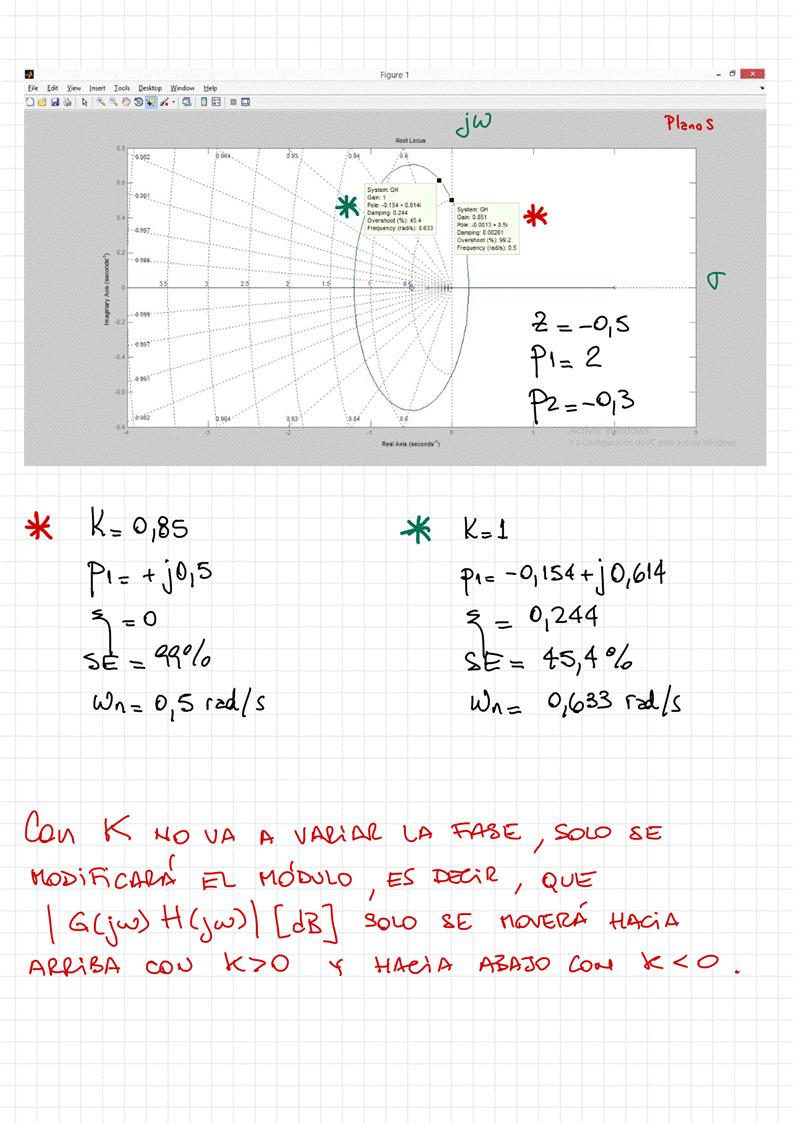 Figure 1
File Edit View Insert Tools Desktop Window Help
jω
Plano S
Root Locus
0.8
0.982 0.964 0.93 0.84 0.6
0.6
0.991
0.4
0.997
0.2
0.999
System: GH
Gain: 1
Pole: -0.154 + 0.614i
Damping: 0.244
Overshoot (%): 45.4
Frequency (rad/s): 0.633
System: GH
Gain: 0.851
Pole: -0.0013 + 0.5i
Damping: 0.00261
Overshoot (%): 99.2
Frequency (rad/s): 0.5
σ
0
3.5 3 2.5 2 1.5 1 0.5
Imaginary Axis (seconds⁻¹)
-0.2
0.999
-0.4
0.997
-0.6
0.991
-0.8
0.982 0.964 0.93 0.84 0.6
-4 -3 -2 -1 0 1 2 3
Real Axis (seconds⁻¹)
Z = -0,5
P1 = 2
P2 = -0,3
Activar Windows
Ir a Configuración de PC para activar Windows.
* K = 0,85
P1 = + j0,5
ξ = 0
SE = 99%
Wn = 0,5 rad/s
* K = 1
P1 = -0,154 + j0,614
ξ = 0,244
SE = 45,4 %
Wn = 0,633 rad/s
Con K NO VA A VARIAR LA FASE, SOLO SE
MODIFICARÁ EL MÓDULO, ES DECIR, QUE
| G(jω) H(jω)| [dB] SOLO SE MOVERÁ HACIA
ARRIBA CON K>0 Y HACIA ABAJO CON K<0.